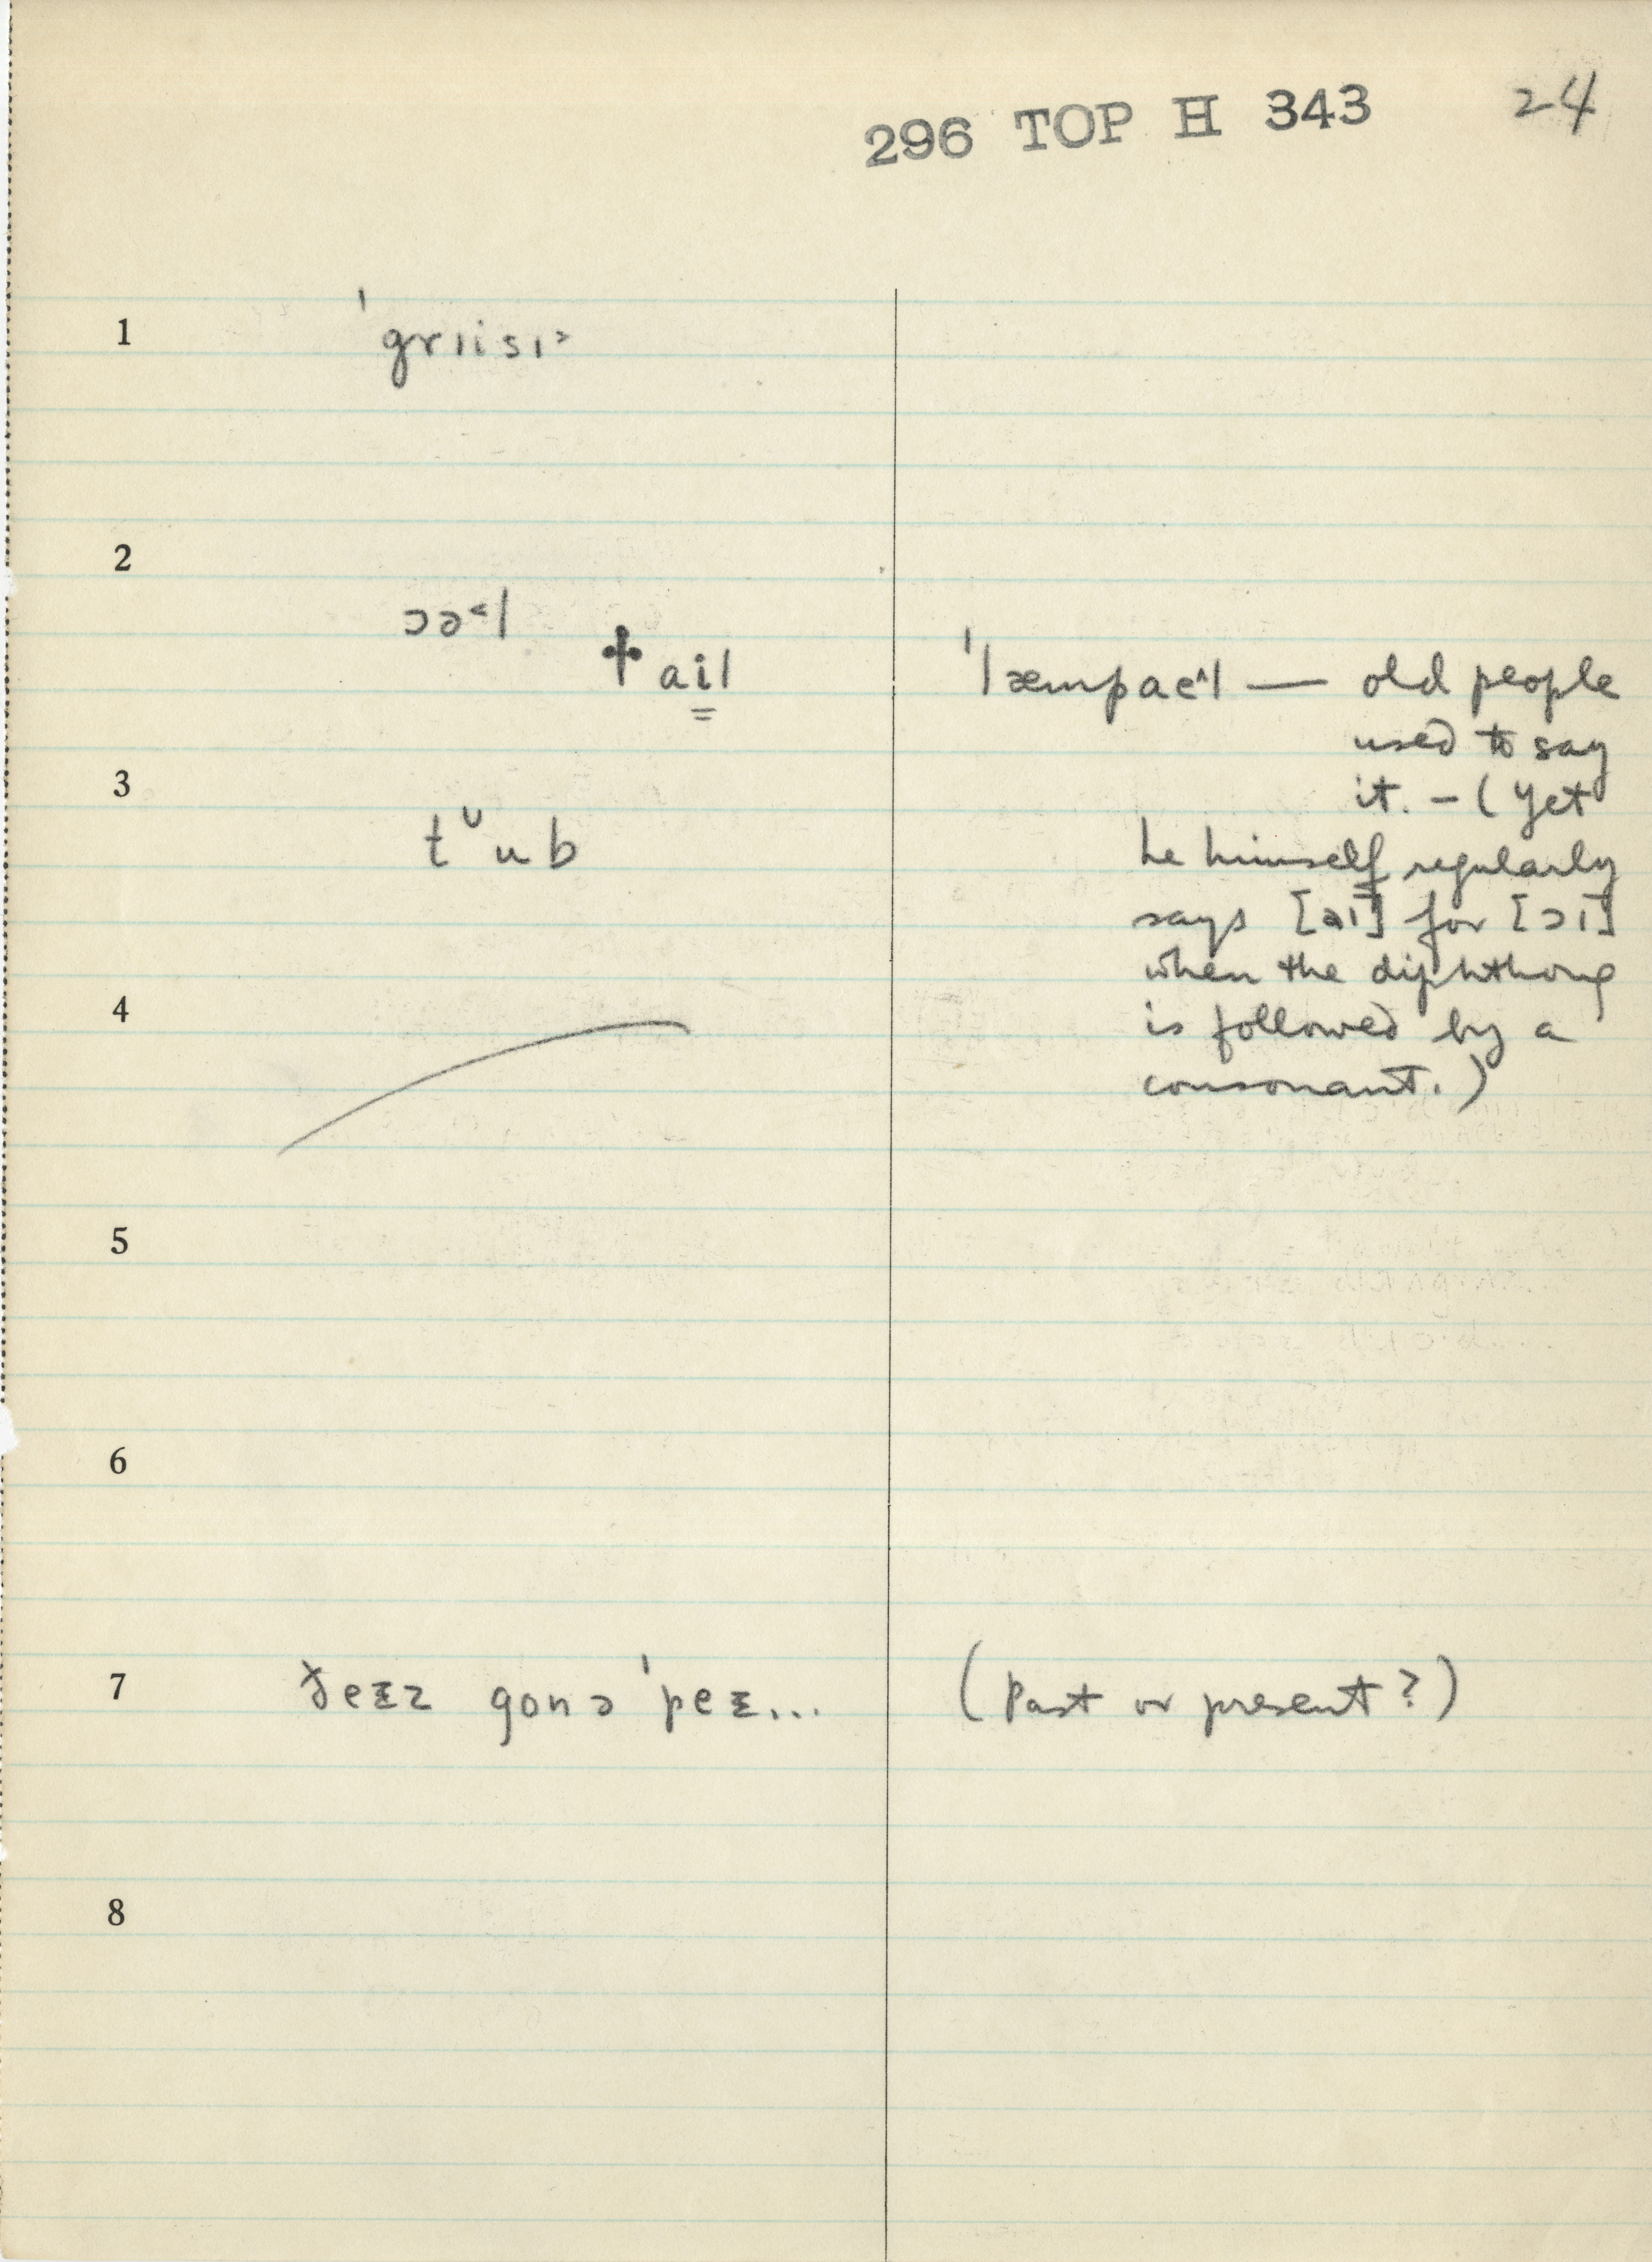 296 TOP H 343 24
1 ˈgrɪisɪ˃
2
ɔə˂l
✝ ail
ˈlæmpaɛ^l — old people
used to say
it. – (Yet
he himself regularly
says [aɪ] for [ɔɪ]
when the diphthong
is followed by a
consonant.)
3 tᵘub
4
5
6
7 ðeᵻz gonəˈpeᵻ... (Past or present?)
8